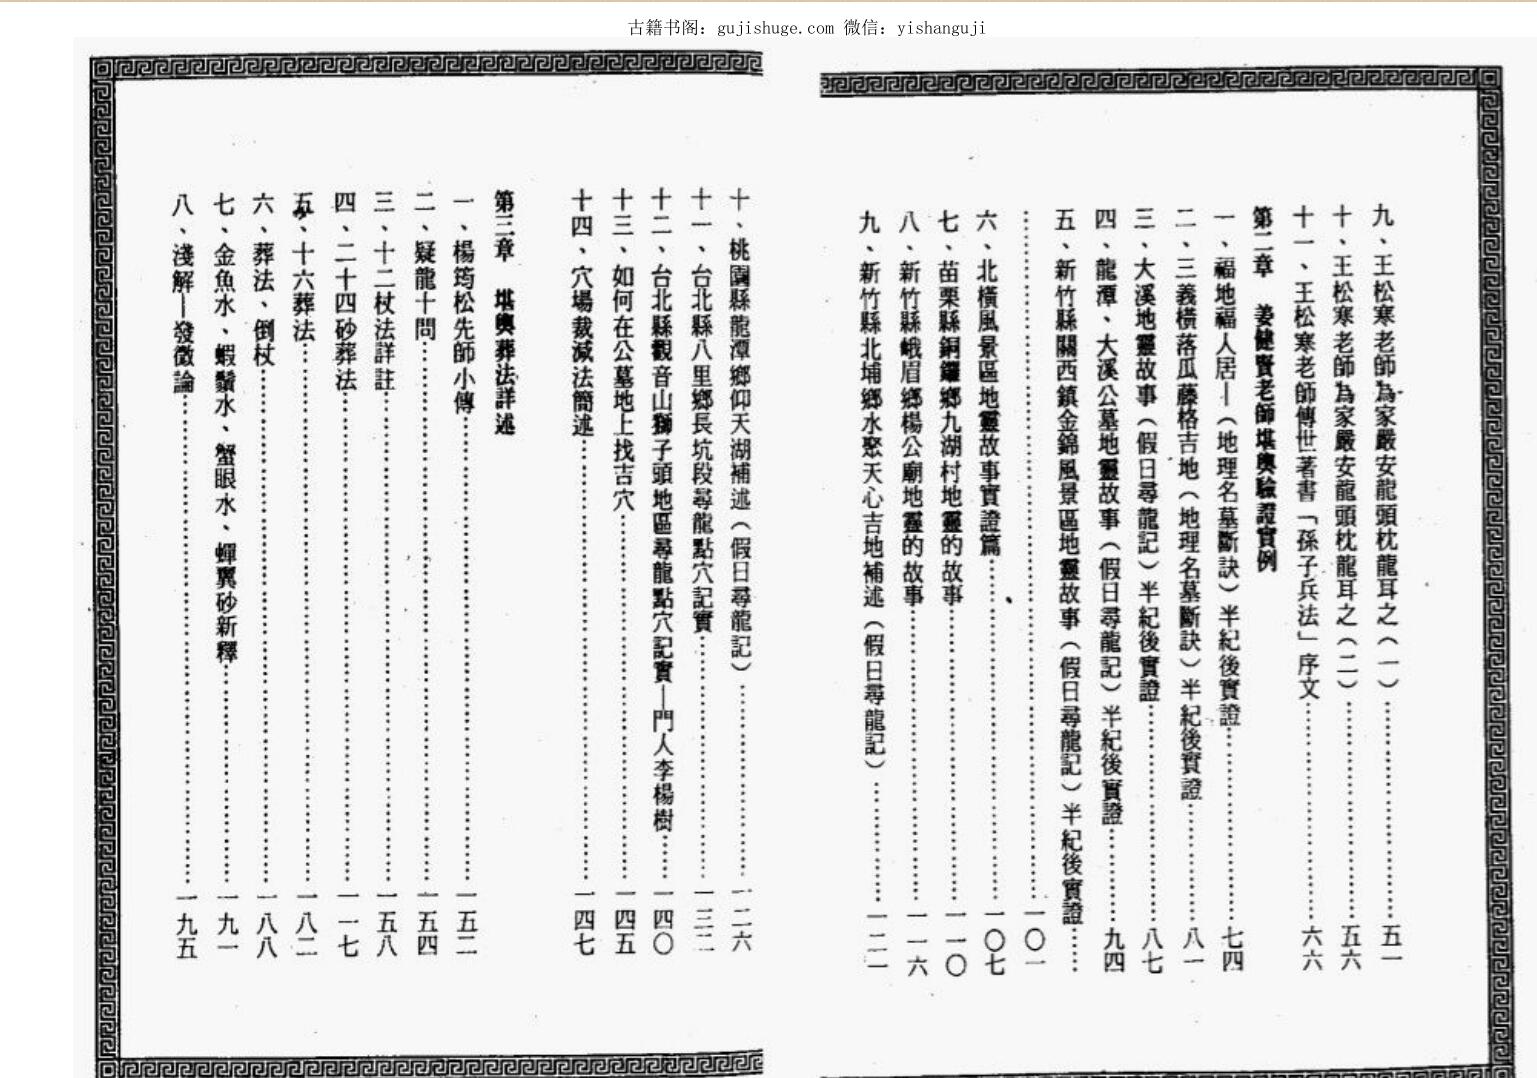 古籍书阁：gujishuge.com 微信：yishanguji
九、王松寒老師為家嚴安龍頭枕龍耳之（一）……五一
十、王松寒老師為家嚴安龍頭枕龍耳之（二）……五六
十一、王松寒老師傳世著書「孫子兵法」序文……六六
第二章　姜健賢老師堪輿驗證實例
一、福地福人居—（地理名墓斷訣）半紀後實證……七四
二、三義橫落瓜藤格吉地（地理名墓斷訣）半紀後實證……八一
三、大溪地靈故事（假日尋龍記）半紀後實證……八七
四、龍潭、大溪公墓地靈故事（假日尋龍記）半紀後實證……九四
五、新竹縣關西鎮金錦風景區地靈故事（假日尋龍記）半紀後實證……
……一〇一
六、北橫風景區地靈故事實證篇……一〇七
七、苗栗縣銅鑼鄉九湖村地靈的故事……一一〇
八、新竹縣峨眉鄉楊公廟地靈的故事……一一六
九、新竹縣北埔鄉水聚天心吉地補述（假日尋龍記）……一二一
十、桃園縣龍潭鄉仰天湖補述（假日尋龍記）……一二六
十一、台北縣八里鄉長坑段尋龍點穴記實……一三二
十二、台北縣觀音山獅子頭地區尋龍點穴記實—門人李楊樹……一四〇
十三、如何在公墓地上找吉穴……一四五
十四、穴場裁減法簡述……一四七
第三章　堪輿葬法詳述
一、楊筠松先師小傳……一五二
二、疑龍十問……一五四
三、十二杖法詳註……一五八
四、二十四砂葬法……一一七
五、十六葬法……一八二
六、葬法、倒杖……一八八
七、金魚水、蝦鬚水、蟹眼水、蟬翼砂新釋……一九一
八、淺解—發微論……一九五